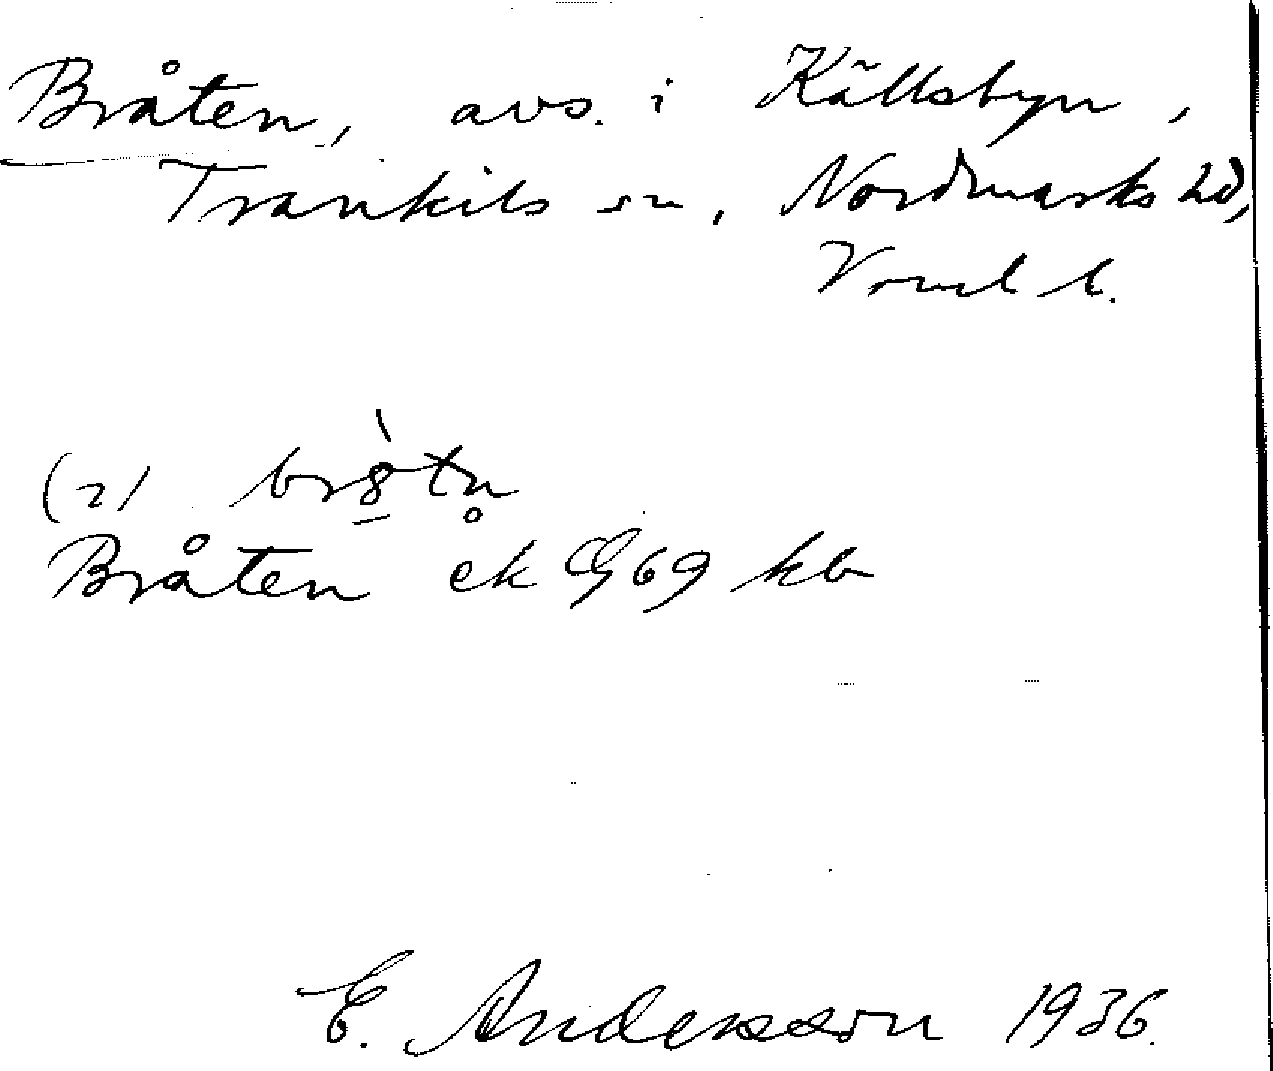 Bråten, avs. i Källsbyn,
Trankils sn, Nordmarks hd,
Värml l.
(2)
Bråten ek 69 kb
E. Andersson 1936.